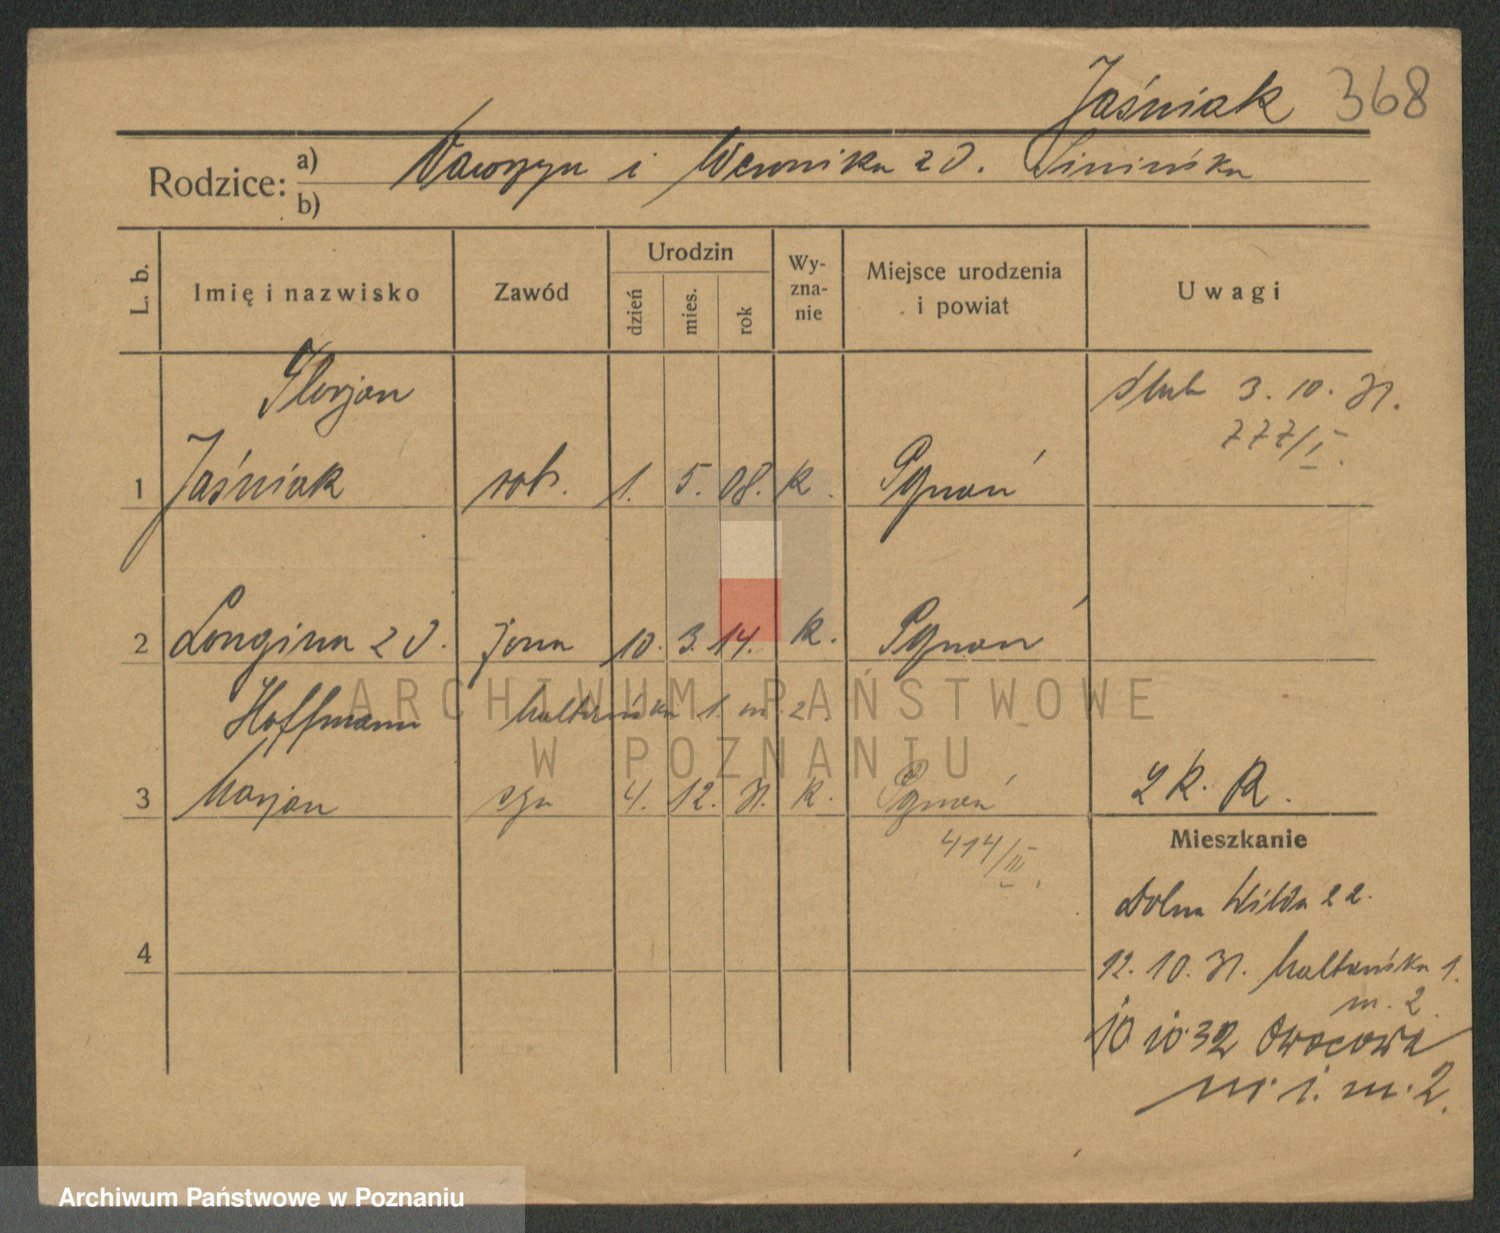 Jaśniak 368
Rodzice: a) Wawrzyn i Weronika z d. Sinińska
b)
L. b. Imię i nazwisko Zawód Urodzin dzień mies. rok Wyznanie Miejsce urodzenia i powiat Uwagi
Florjan ślub 3. 10. 31.
777/I.
1 Jaśniak rob. 1. 5. 08. k. Poznań
2 Longina z d. żona 10. 3. 14. k. Poznań
Hoffmann Maltańska 1. m. 2.
3 Marjan syn 4. 12. 31. k. Poznań 2 K. R.
414/III.
Mieszkanie
Dolna Wilda 22.
4
12. 10. 31. Maltańska 1.
m. 2.
10 10 32 Owocowa
nr. 1. m. 2.
ARCHIWUM PAŃSTWOWE
W POZNANIU
Archiwum Państwowe w Poznaniu